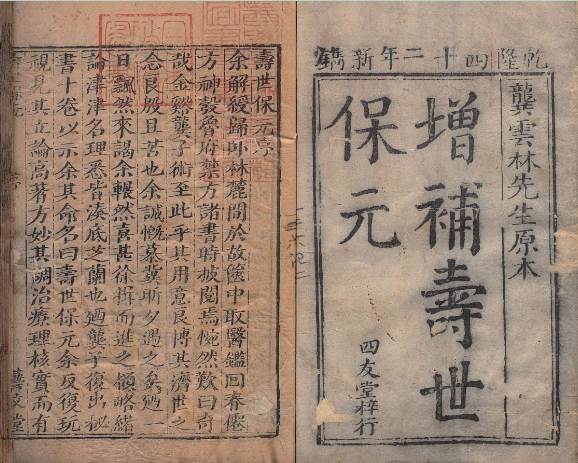 乾隆四十二年新鐫
龔雲林先生原本
增補壽世
保元
四友堂梓行
壽世保元序
余解綬歸卧林麓間於故篋中取醫鑑回春僊
方神彀魯府禁方諸書時披閱焉惋然歎曰奇
哉金谿龔子術至此乎其用意良博其濟世之
念良殷且苦也余誠慨慕冀斯夕遇之矣廼一
日飄然來謁余囅然喜甚徐揖而進之領略緒
論津津名理悉皆湊底芝蘭也廼龔子復出秘
書十卷以示余其命名曰壽世保元余反復玩
視見其立論高著方妙其調治療理核實而有
文堂